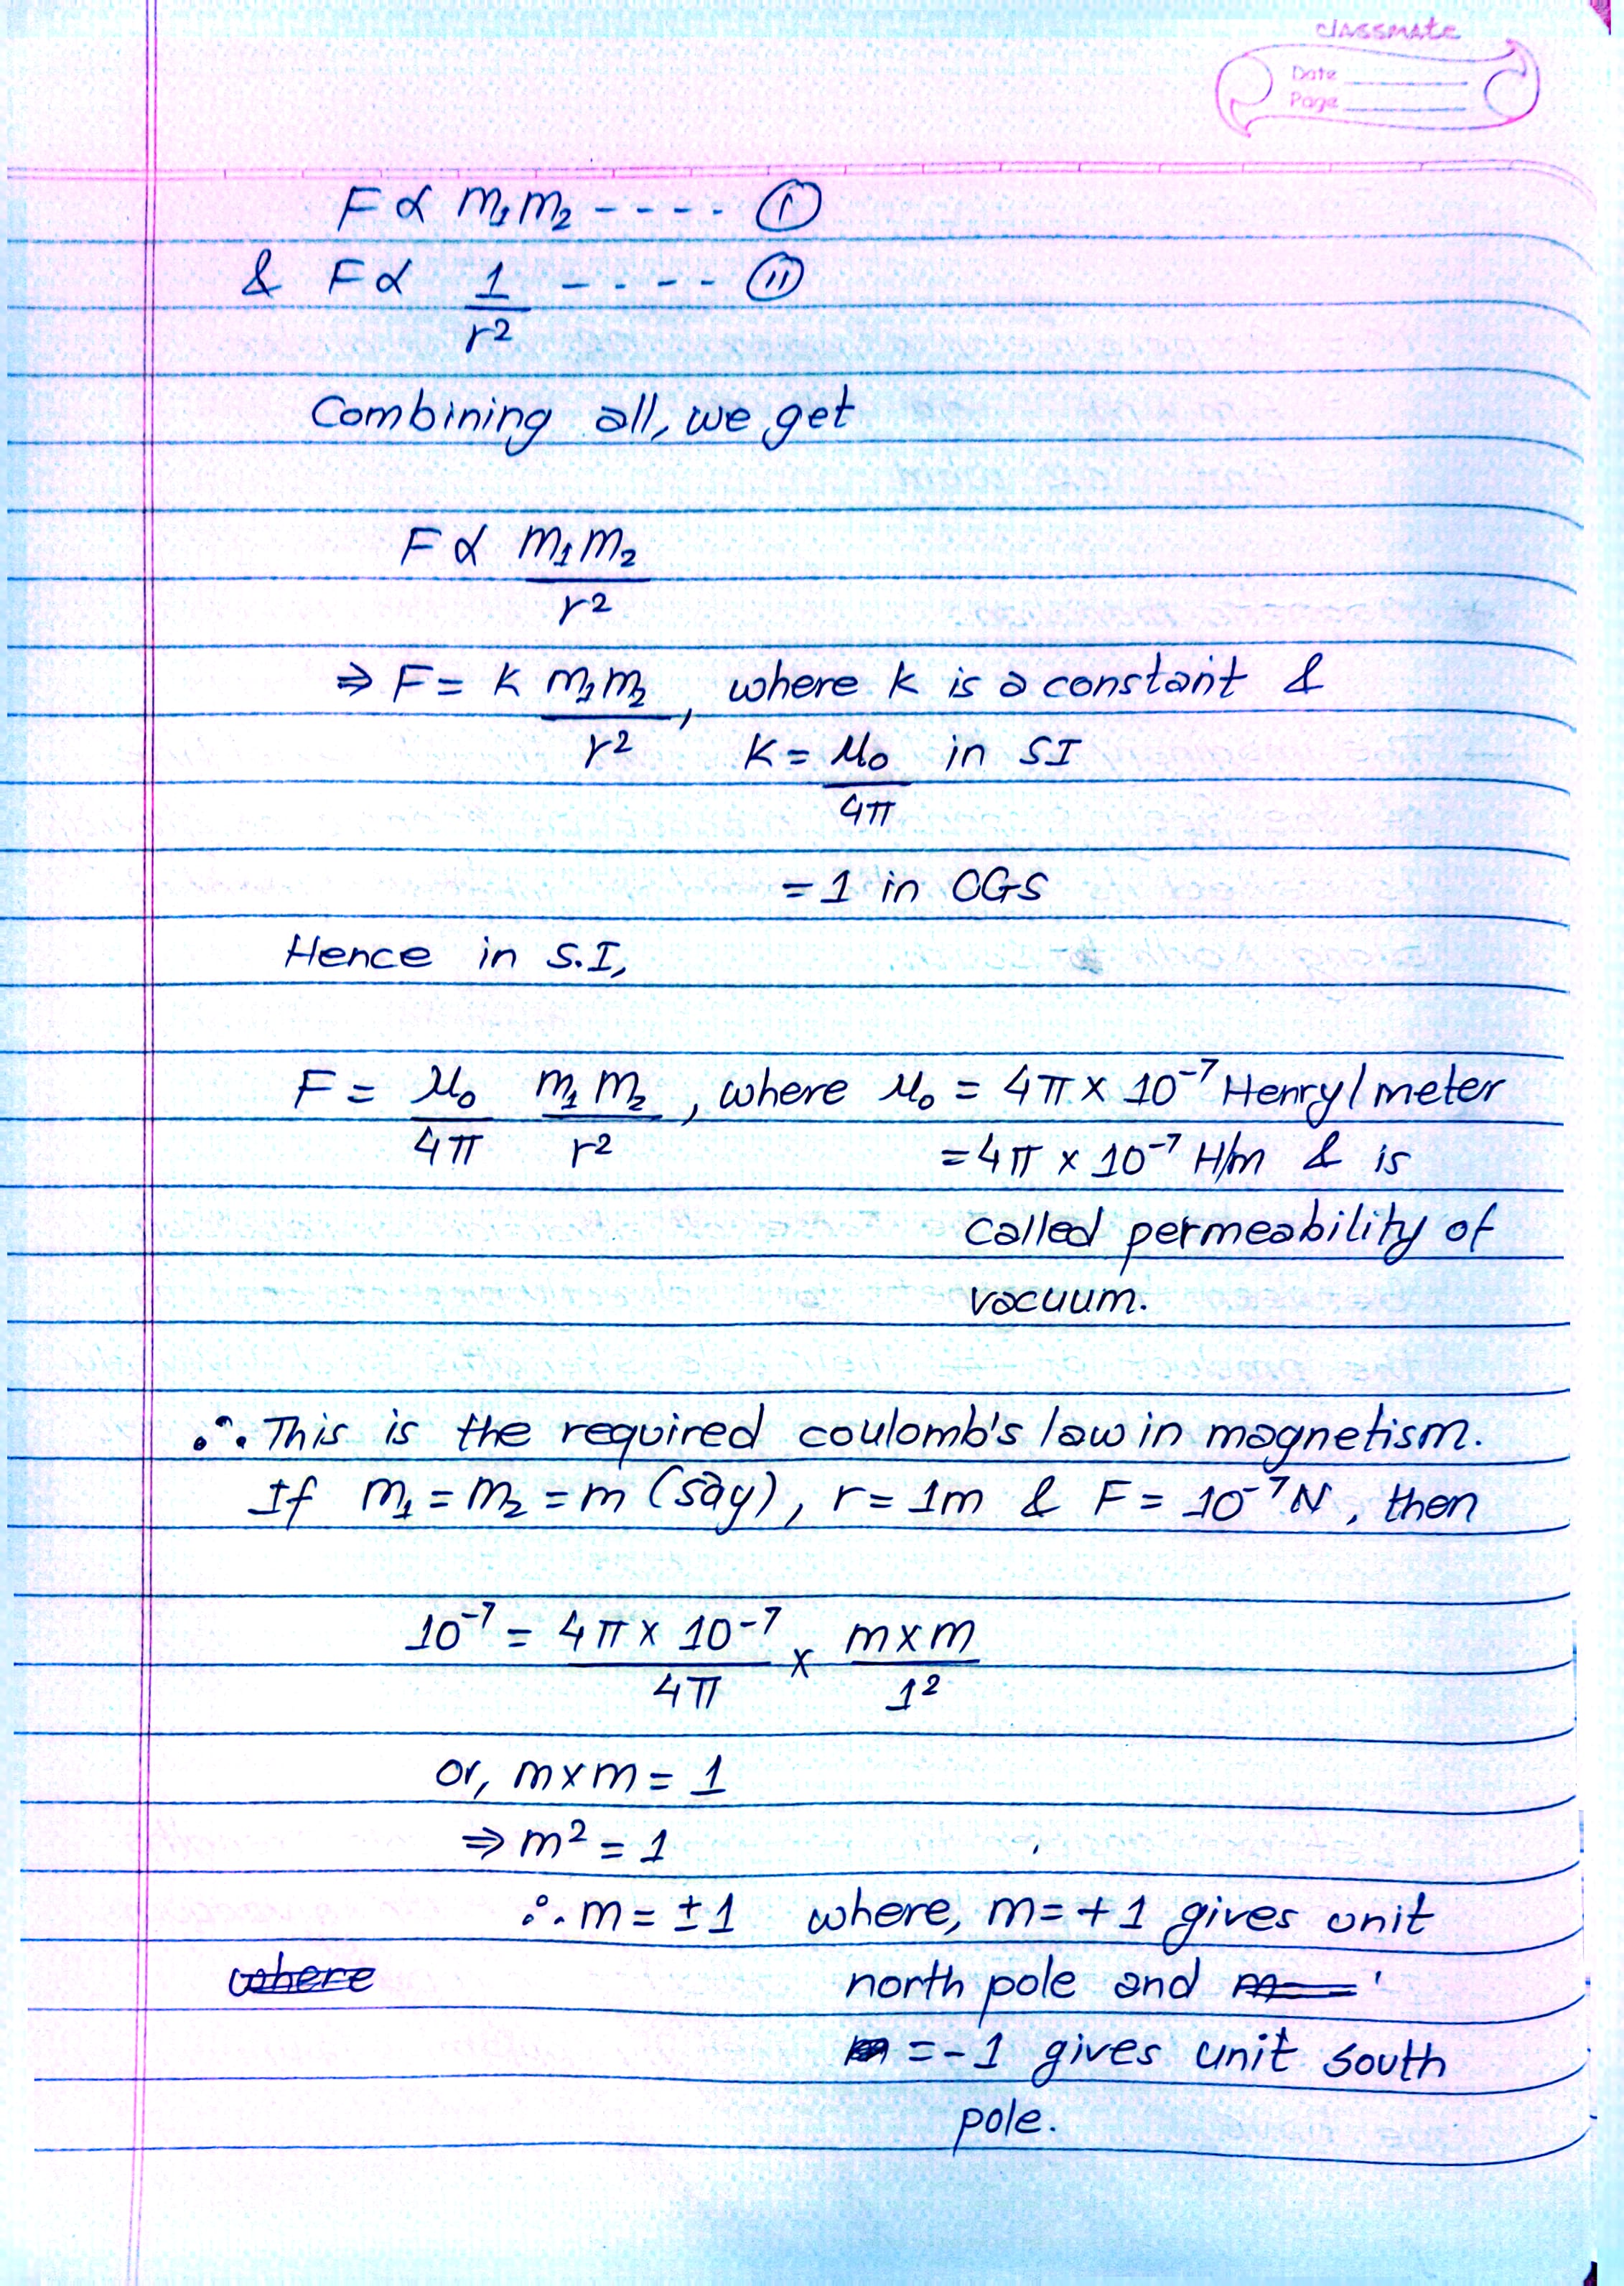 classmate
Date
Page
F ∝ m₁m₂ ---- (I)
& F ∝ 1/r² ----- (II)
Combining all, we get
F ∝ m₁m₂/r²
⇒ F = K m₁m₂/r², where k is a constant &
K = μ₀/4π in SI
= 1 in CGS
Hence in S.I,
F = μ₀/4π m₁m₂/r², where μ₀ = 4π × 10⁻⁷ Henry/meter
= 4π × 10⁻⁷ H/m & is
called permeability of
vacuum.
∴ This is the required coulomb's law in magnetism.
If m₁ = m₂ = m (say), r = 1m & F = 10⁻⁷N, then
10⁻⁷ = 4π × 10⁻⁷/4π × m×m/1²
or, m×m = 1
⇒ m² = 1
∴ m = ±1 where, m = +1 gives unit
where north pole and m =
m = -1 gives unit south
pole.